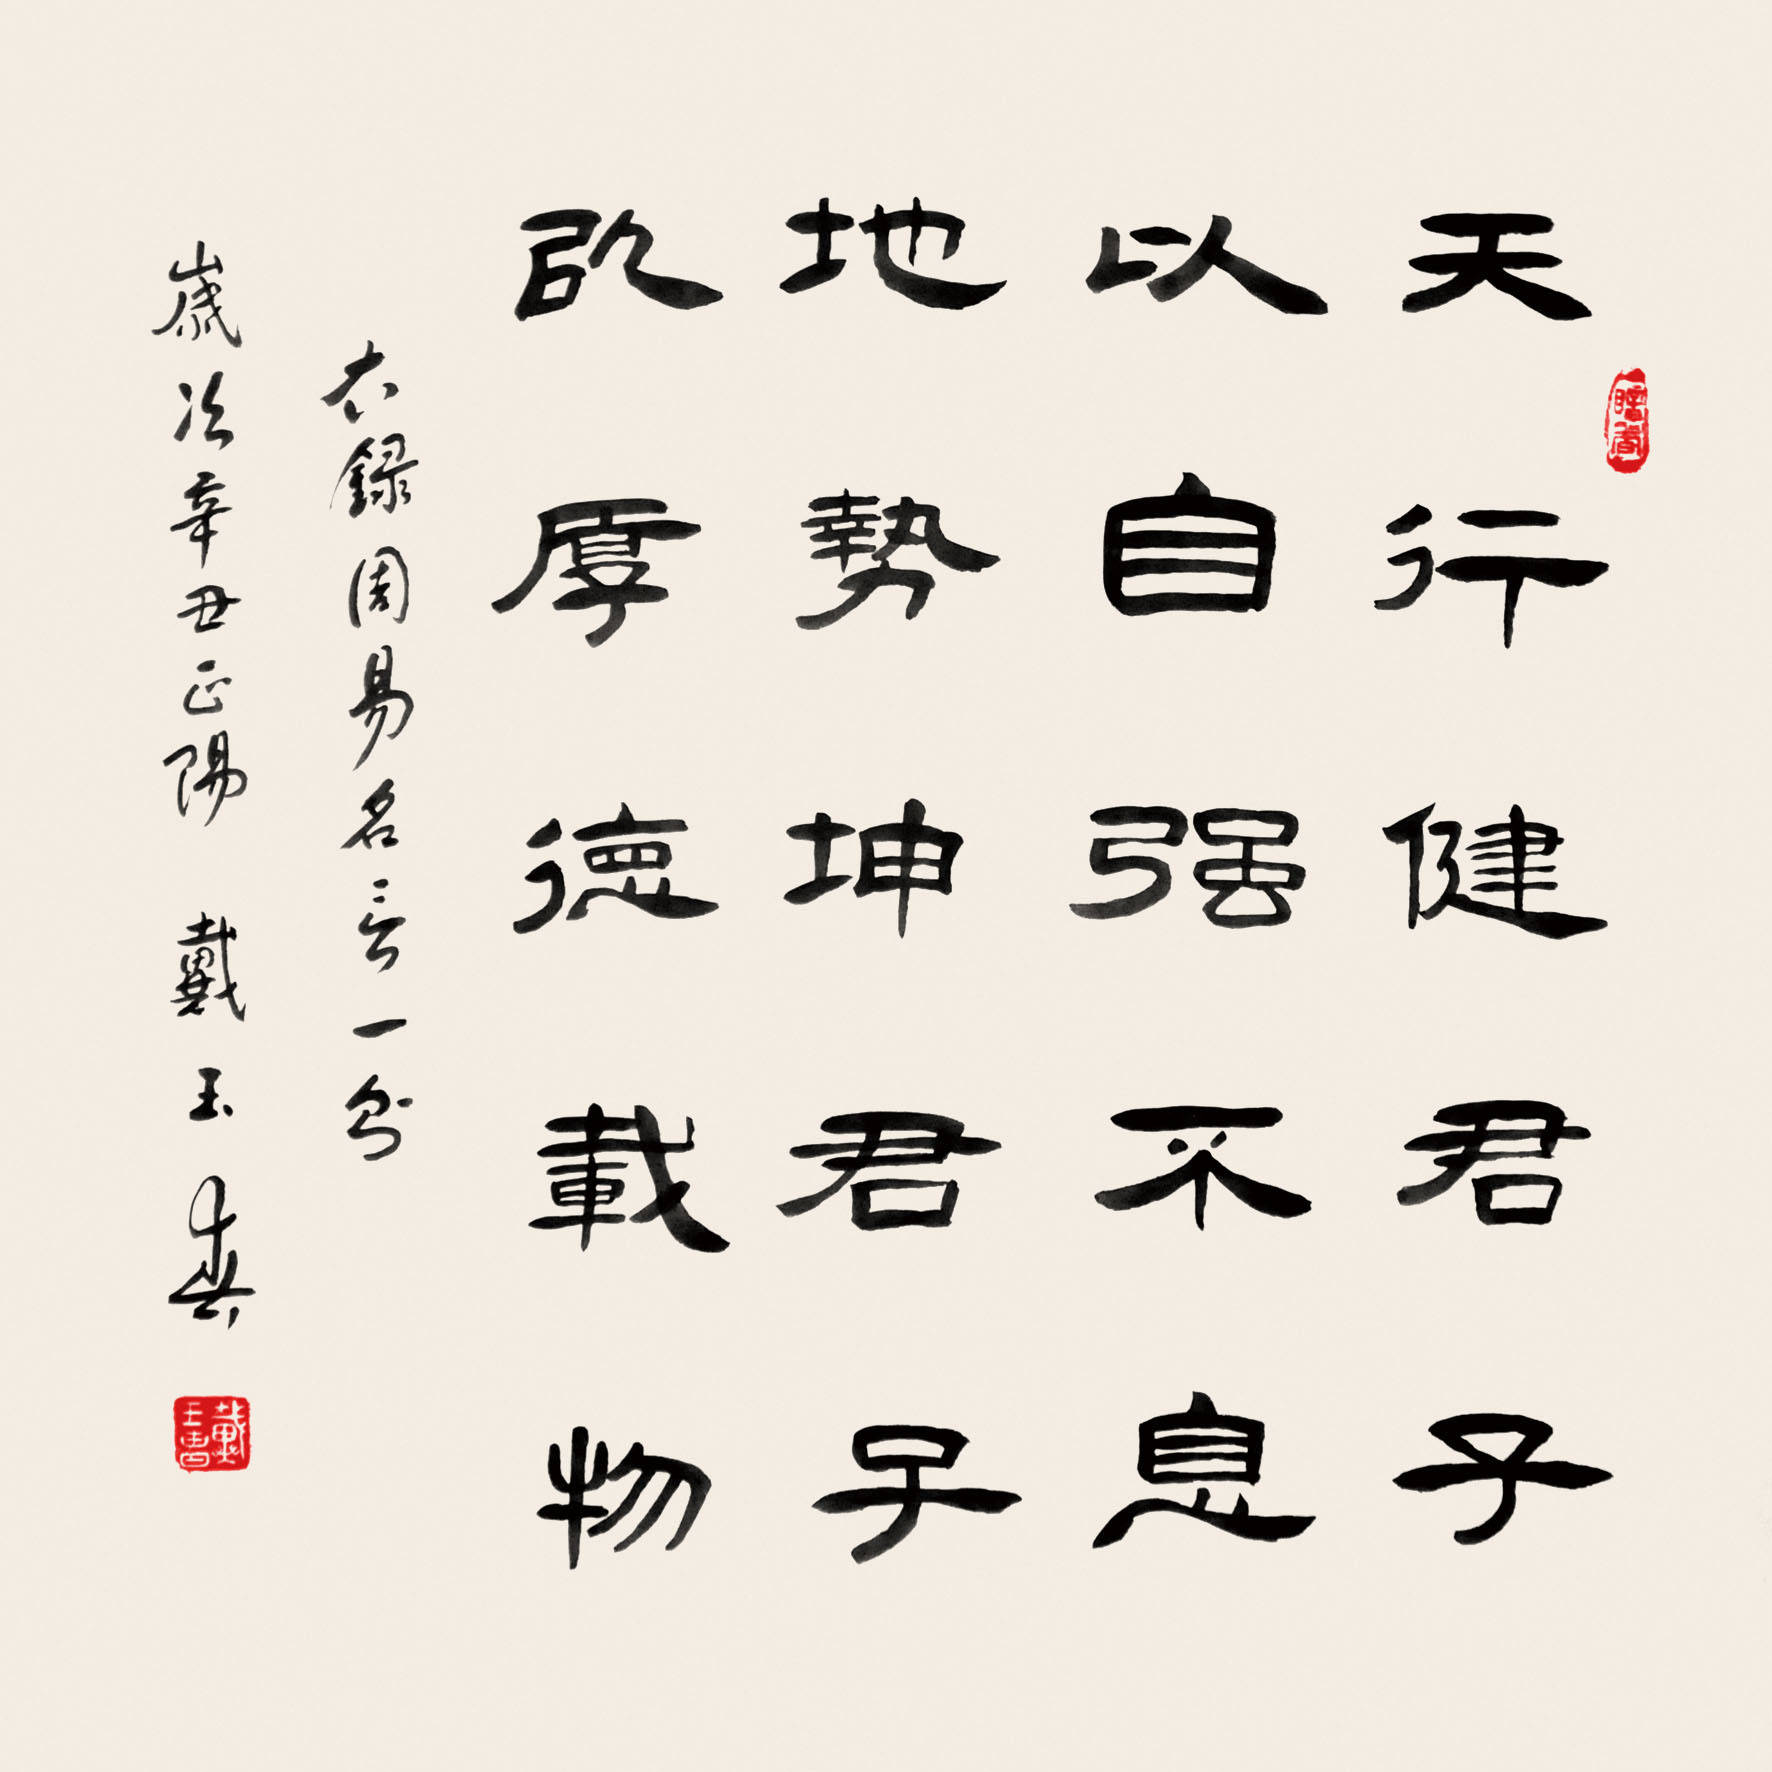 天行健君子
以自强不息
地勢坤君子
以厚德載物
右錄周易名言一則
歲次辛丑正陽 戴玉